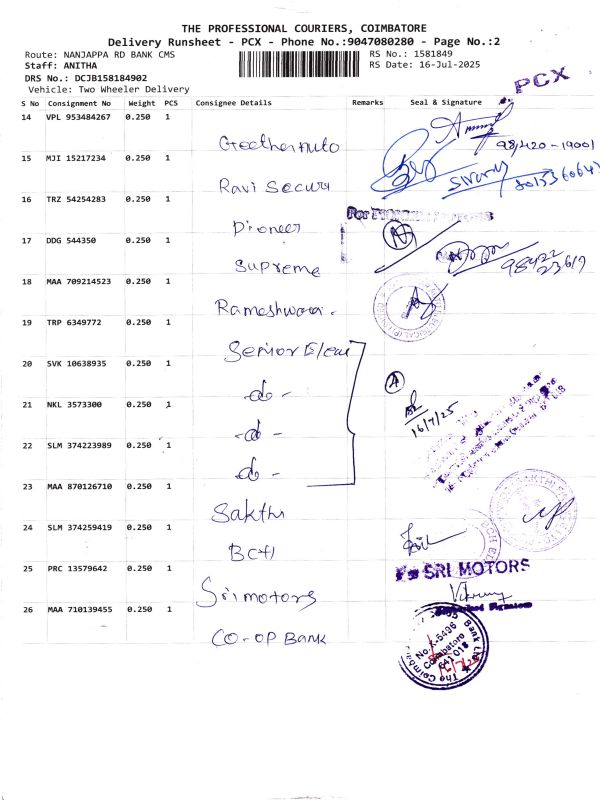 THE PROFESSIONAL COURIERS, COIMBATORE
Delivery Runsheet - PCX - Phone No.:9047080280 - Page No.:2
Route: NANJAPPA RD BANK CMS RS No.: 1581849
Staff: ANITHA RS Date: 16-Jul-2025
DRS No.: DCJB158184902
Vehicle: Two Wheeler Delivery
PCX
S No Consignment No Weight PCS Consignee Details Remarks Seal & Signature
14 VPL 953484267 0.250 1
98420-19001
15 MJI 15217234 0.250 1
Ravi Secura
16 TRZ 54254283 0.250 1
Pioneer
17 DDG 544350 0.250 1
Supreme
18 MAA 709214523 0.250 1
Rameshwara.
19 TRP 6349772 0.250 1
Senior
20 SVK 10638935 0.250 1
-do-
21 NKL 3573300 0.250 1
-do-
16/7/25
22 SLM 374223989 0.250 1
-do-
23 MAA 870126710 0.250 1
Sakthi
24 SLM 374259419 0.250 1
25 PRC 13579642 0.250 1
For SRI MOTORS
Sri motors
Authorised Signatory
26 MAA 710139455 0.250 1
CO-OP BANK
No.K-5496
Coimbatore
641 018